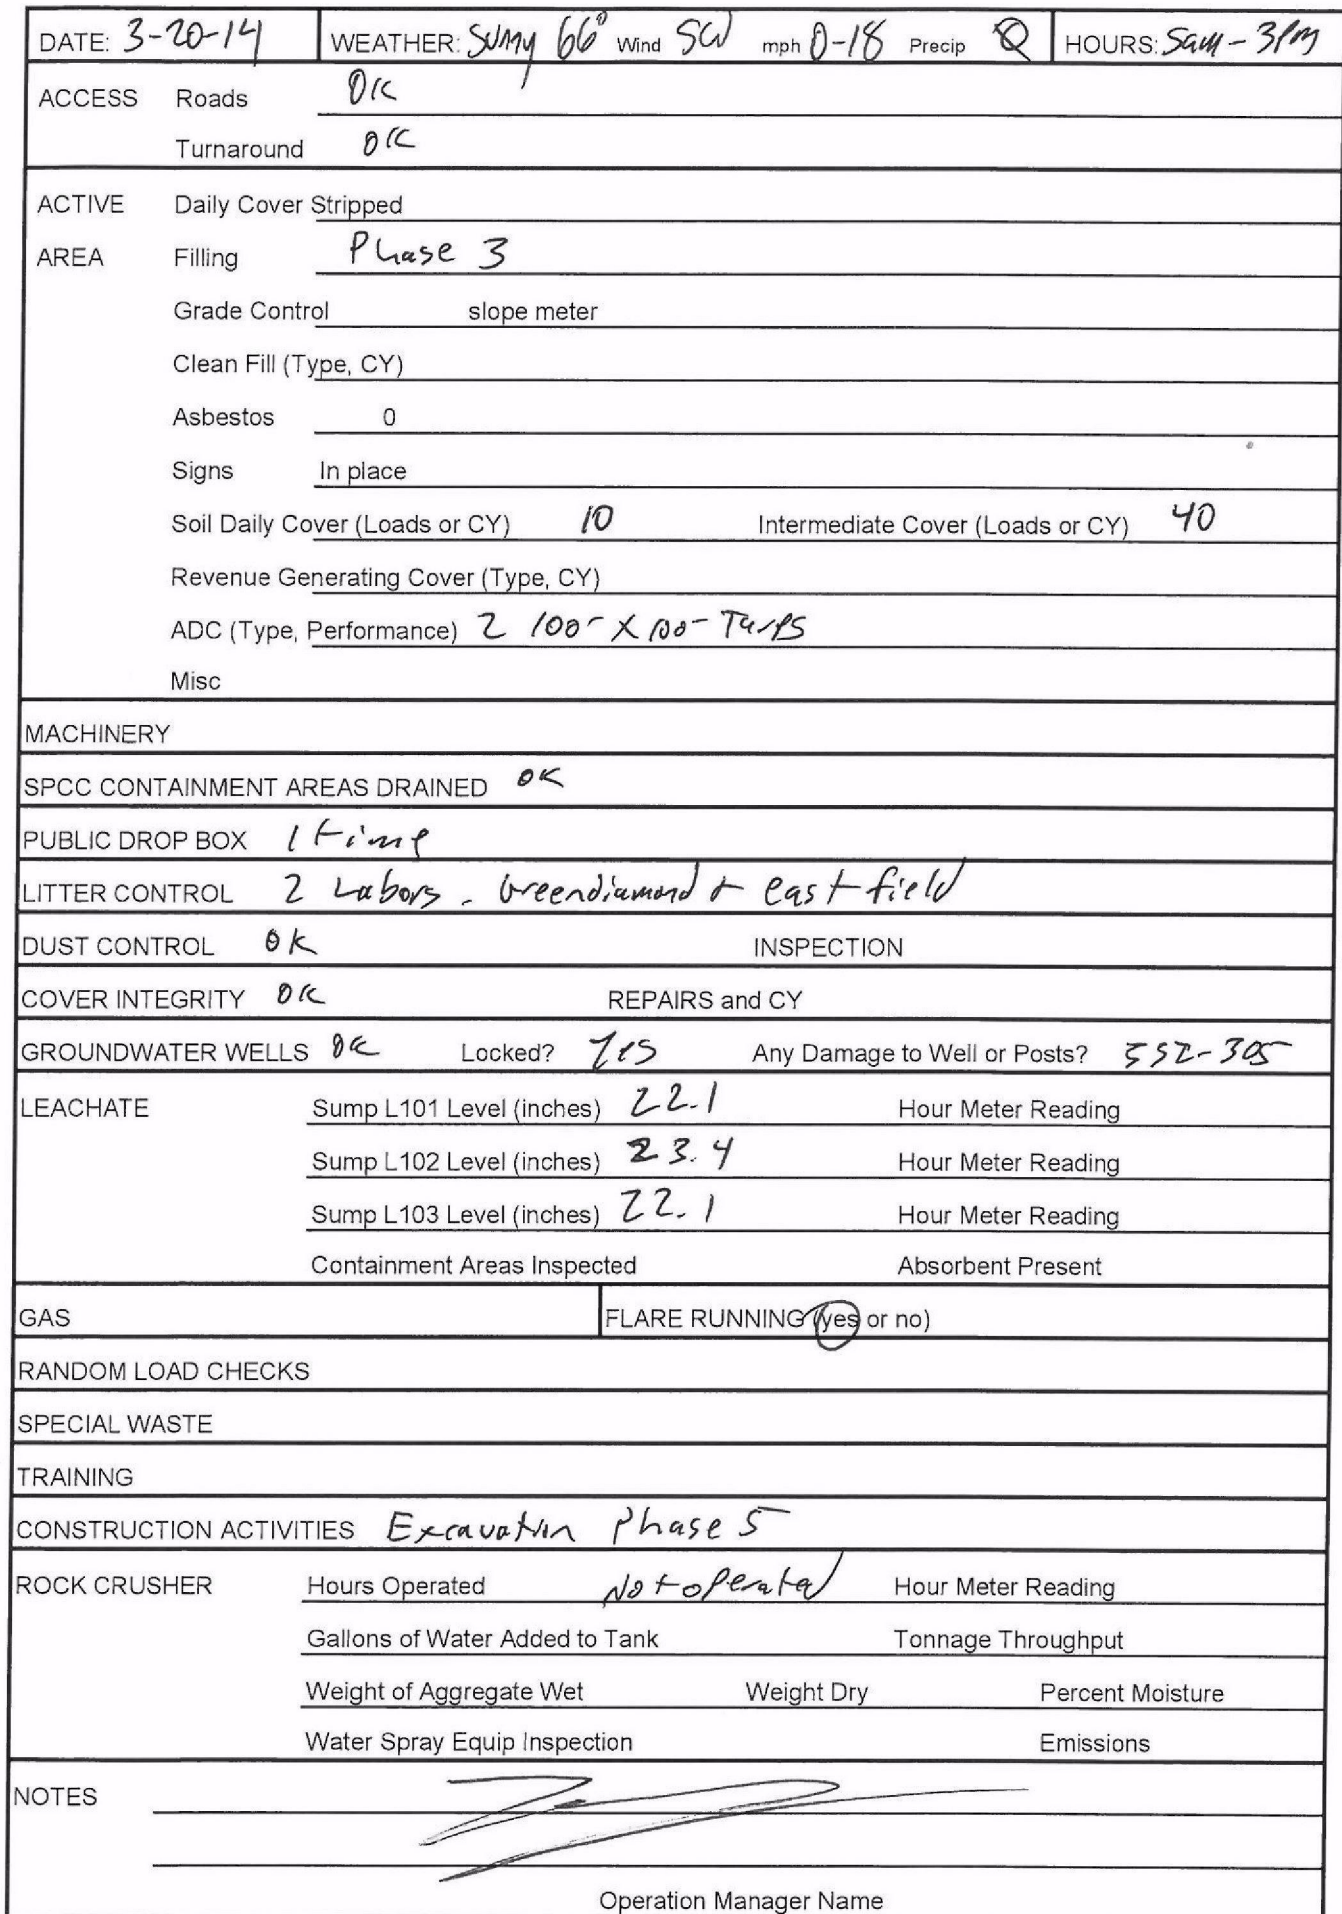 DATE: 3-20-14 WEATHER: Sunny 66° Wind SW mph 0-18 Precip 0 HOURS: 5am - 3PM
ACCESS Roads OK
Turnaround OK
ACTIVE Daily Cover Stripped
AREA Filling Phase 3
Grade Control slope meter
Clean Fill (Type, CY)
Asbestos 0
Signs In place
Soil Daily Cover (Loads or CY) 10 Intermediate Cover (Loads or CY) 40
Revenue Generating Cover (Type, CY)
ADC (Type, Performance) 2 100- X 100- Tarps
Misc
MACHINERY
SPCC CONTAINMENT AREAS DRAINED OK
PUBLIC DROP BOX 1 time
LITTER CONTROL 2 Labors - Greendiamond + east field
DUST CONTROL OK INSPECTION
COVER INTEGRITY OK REPAIRS and CY
GROUNDWATER WELLS OK Locked? Yes Any Damage to Well or Posts? 552-305
LEACHATE Sump L101 Level (inches) 22.1 Hour Meter Reading
Sump L102 Level (inches) 23.4 Hour Meter Reading
Sump L103 Level (inches) 22.1 Hour Meter Reading
Containment Areas Inspected Absorbent Present
GAS FLARE RUNNING (yes or no)
RANDOM LOAD CHECKS
SPECIAL WASTE
TRAINING
CONSTRUCTION ACTIVITIES Excavation Phase 5
ROCK CRUSHER Hours Operated Not operated Hour Meter Reading
Gallons of Water Added to Tank Tonnage Throughput
Weight of Aggregate Wet Weight Dry Percent Moisture
Water Spray Equip Inspection Emissions
NOTES
Operation Manager Name